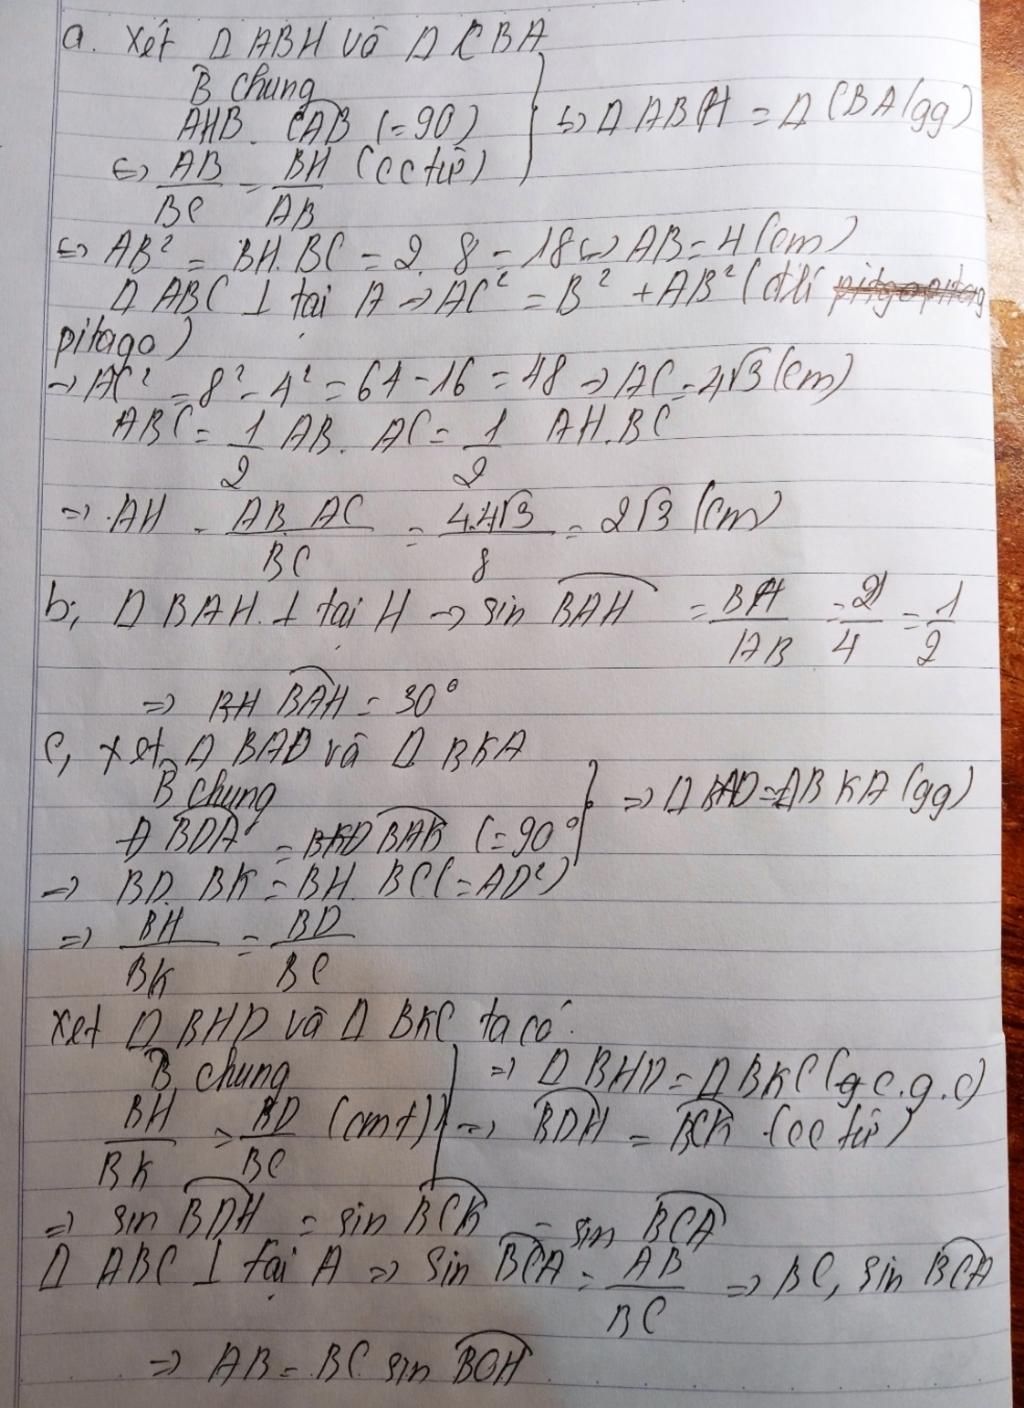 a. Xét Δ ABH và Δ CBA
B̂ chung
AHB = CAB (=90) ⇔ Δ ABH = Δ CBA (gg)
⇔ AB/BC = BH/AB (cctư)
⇔ AB² = BH.BC = 2.8 = 18 ⇔ AB = 4 (cm)
Δ ABC ⊥ tại A → AC² = B² + AB² (đlí
pitago)
→ AC² = 8² - 4² = 64 - 16 = 48 → AC = 4√3 (cm)
ABC = 1/2 AB. AC = 1/2 AH.BC
=> AH = AB.AC/BC = 4.4√3/8 = 2√3 (cm)
b, Δ BAH ⊥ tại H → sin BAH = BH/AB = 2/4 = 1/2
=> BH BAH = 30°
c, xét Δ BAD và Δ BKA
B̂ chung
BDA = BAK (=90° => Δ BAD = ΔBKA (gg)
=> BD. BK = BH. BC (=AD²)
=> BH/BK = BD/BC
Xét Δ BHD và Δ BKC ta có:
B̂ chung => Δ BHD = Δ BKC (c.g.c)
BH/BK = BD/BC (cmt) => BDH = BCK (cctư)
=> sin BDH = sin BCK = sin BCA
Δ ABC ⊥ tại A => sin BCA = AB/BC => BC, sin BCA
=> AB = BC sin BOH